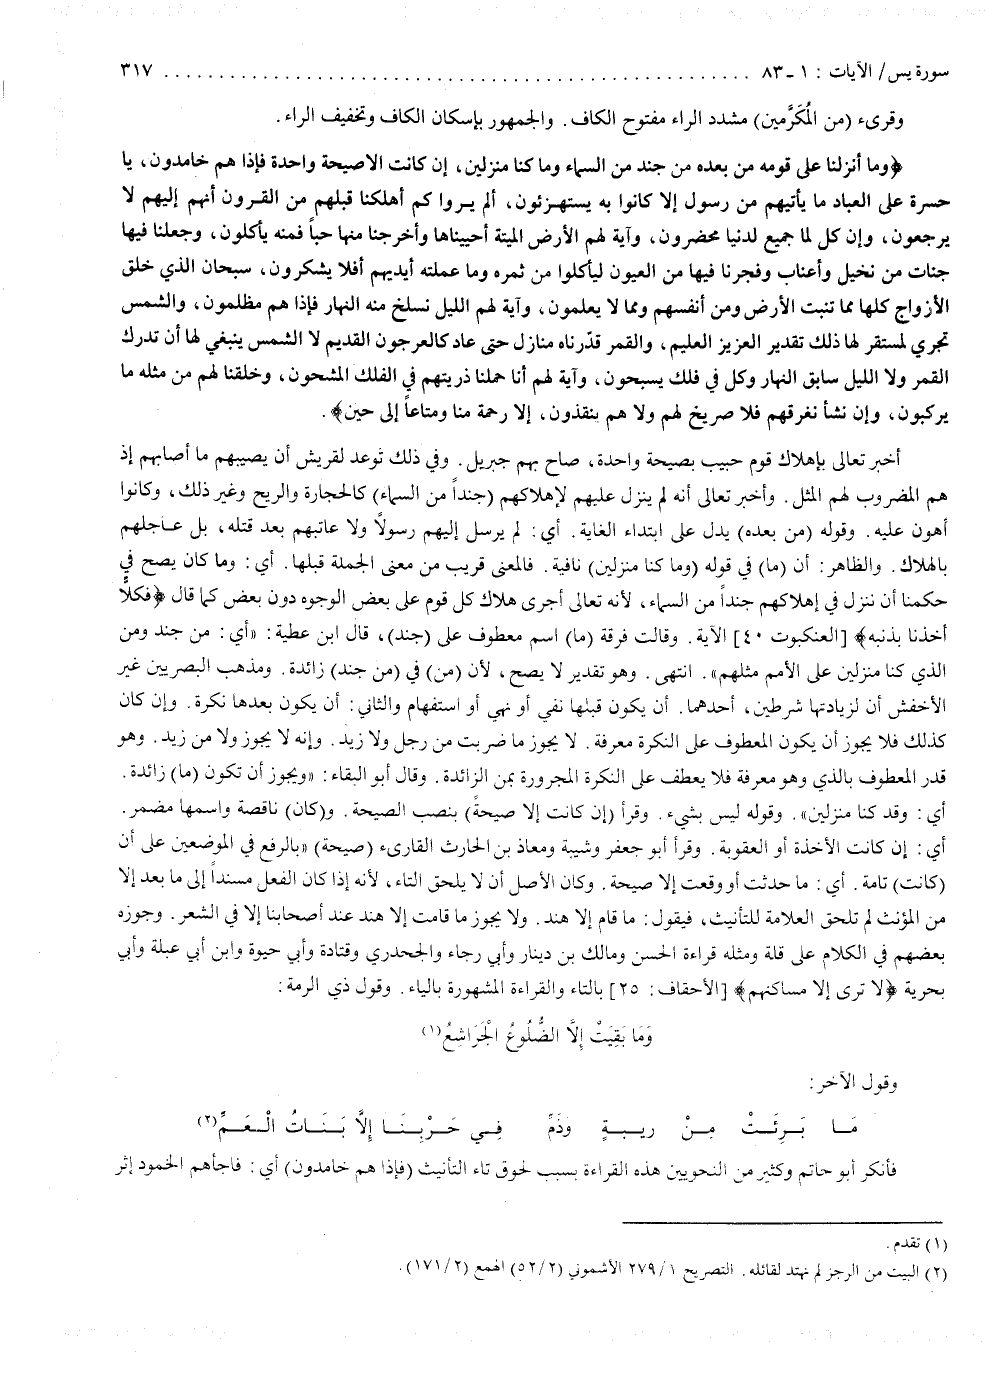 سورة يس/ الآيات : ١ ـ ٨٣ ................................................ ٣١٧
وقرىء (من المُكَرَّمين) مشدد الراء مفتوح الكاف. والجمهور بإسكان الكاف وتخفيف الراء.
﴿وما أنزلنا على قومه من بعده من جند من السماء وما كنا منزلين، إن كانت الاصيحة واحدة فإذا هم خامدون، يا
حسرة على العباد ما يأتيهم من رسول إلا كانوا به يستهزئون، ألم يروا كم أهلكنا قبلهم من القرون أنهم إليهم لا
يرجعون، وإن كل لما جميع لدنيا محضرون، وآية لهم الأرض الميتة أحييناها وأخرجنا منها حباً فمنه يأكلون، وجعلنا فيها
جنات من نخيل وأعناب وفجرنا فيها من العيون ليأكلوا من ثمره وما عملته أيديهم أفلا يشكرون، سبحان الذي خلق
الأزواج كلها مما تنبت الأرض ومن أنفسهم ومما لا يعلمون، وآية لهم الليل نسلخ منه النهار فإذا هم مظلمون، والشمس
تجري لمستقر لها ذلك تقدير العزيز العليم، والقمر قدّرناه منازل حتى عاد كالعرجون القديم لا الشمس ينبغي لها أن تدرك
القمر ولا الليل سابق النهار وكل في فلك يسبحون، وآية لهم أنا حملنا ذريتهم في الفلك المشحون، وخلقنا لهم من مثله ما
يركبون، وإن نشأ نغرقهم فلا صريخ لهم ولا هم ينقذون، إلا رحمة منا ومتاعاً إلى حين﴾.
أخبر تعالى بإهلاك قوم حبيب بصيحة واحدة، صاح بهم جبريل. وفي ذلك تَوعد لقريش أن يصيبهم ما أصابهم إذ
هم المضروب لهم المثل. وأخبر تعالى أنه لم ينزل عليهم لإهلاكهم (جنداً من السماء) كالحجارة والريح وغير ذلك، وكانوا
أهون عليه. وقوله (من بعده) يدل على ابتداء الغاية. أي: لم يرسل إليهم رسولاً ولا عاتبهم بعد قتله، بل عاجلهم
بالهلاك. والظاهر: أن (ما) في قوله (وما كنا منزلين) نافية. فالمعنى قريب من معنى الجملة قبلها. أي: وما كان يصح في
حكمنا أن ننزل في إهلاكهم جنداً من السماء، لأنه تعالى أجرى هلاك كل قوم على بعض الوجوه دون بعض كما قال ﴿فكلًّا
أخذنا بذنبه﴾ [العنكبوت ٤٠] الآية. وقالت فرقة (ما) اسم معطوف على (جند)، قال ابن عطية: «أي: من جند ومن
الذي كنا منزلين على الأمم مثلهم». انتهى. وهو تقدير لا يصح، لأن (من) في (من جند) زائدة. ومذهب البصريين غير
الأخفش أن لزيادتها شرطين، أحدهما. أن يكون قبلها نفي أو نهي أو استفهام والثاني: أن يكون بعدها نكرة. وإن كان
كذلك فلا يجوز أن يكون المعطوف على النكرة معرفة. لا يجوز ما ضربت من رجل ولا زيد. وإنه لا يجوز ولا من زيد. وهو
قدر المعطوف بالذي وهو معرفة فلا يعطف على النكرة المجرورة بمن الزائدة. وقال أبو البقاء: «ويجوز أن تكون (ما) زائدة.
أي: وقد كنا منزلين». وقوله ليس بشيء. وقرأ (إن كانت إلا صيحةً) بنصب الصيحة. و(كان) ناقصة واسمها مضمر.
أي: إن كانت الأخذة أو العقوبة. وقرأ أبو جعفر وشيبة ومعاذ بن الحارث القارىء (صيحة) «بالرفع في الموضعين على أن
(كانت) تامة. أي: ما حدثت أو وقعت إلا صيحة. وكان الأصل أن لا يلحق التاء، لأنه إذا كان الفعل مسنداً إلى ما بعد إلا
من المؤنث لم تلحق العلامة للتأنيث، فيقول: ما قام إلا هند. ولا يجوز ما قامت إلا هند عند أصحابنا إلا في الشعر. وجوزه
بعضهم في الكلام على قلة ومثله قراءة الحسن ومالك بن دينار وأبي رجاء والجحدري وقتادة وأبي حيوة وابن أبي عبلة وأبي
بحرية ﴿لا ترى إلا مساكنهم﴾ [الأحقاف: ٢٥] بالتاء والقراءة المشهورة بالياء. وقول ذي الرمة:
وَمَا بَقِيَتْ إِلَّا الضُّلُوعُ الْجَرَاشِعُ(١)
وقول الآخر:
مَـا بَـرِئَـتْ مِـنْ رِيـبـةٍ وَذَمِّ فِـي حَـرْبِـنَـا إِلَّا بَـنَـاتُ الْـعَـمِّ(٢)
فأنكر أبو حاتم وكثير من النحويين هذه القراءة بسبب لحوق تاء التأنيث (فإذا هم خامدون) أي: فاجأهم الخمود إثر
(١) تقدم.
(٢) البيت من الرجز لم نهتد لقائله. التصريح ١/ ٢٧٩ الأشموني (٢/ ٥٢) الهمع (٢/ ١٧١).